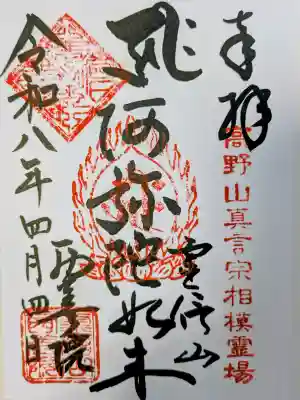 奉拝
高野山真言宗相模霊場
阿弥陀如来
霊信山
西善院
令和八年四月四日